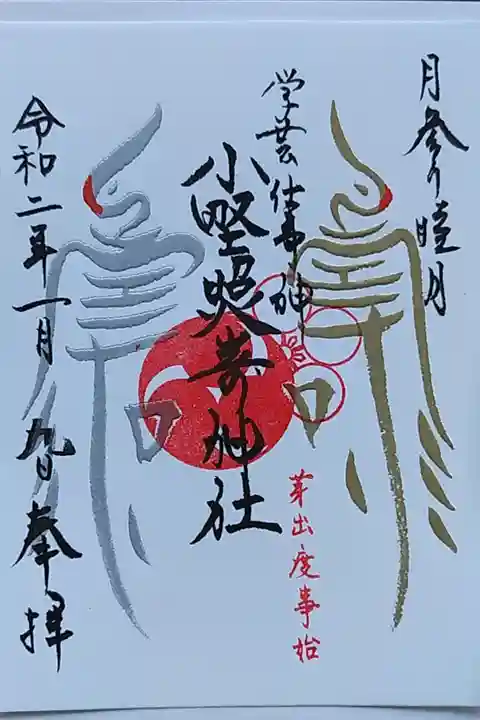 月参り睦月
学芸仕事神
小野照崎神社
芽出度事始
令和二年一月九日奉拝